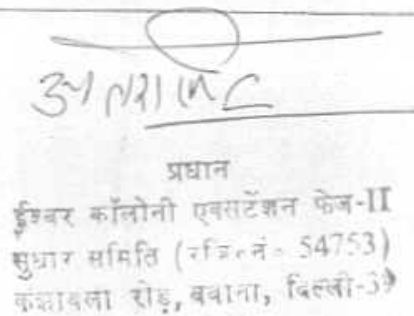 प्रधान
ईश्वर कॉलोनी एक्सटेंशन फेज-II
सुधार समिति (रजि॰ नं॰ 54753)
कंझावला रोड़, बवाना, दिल्ली-39